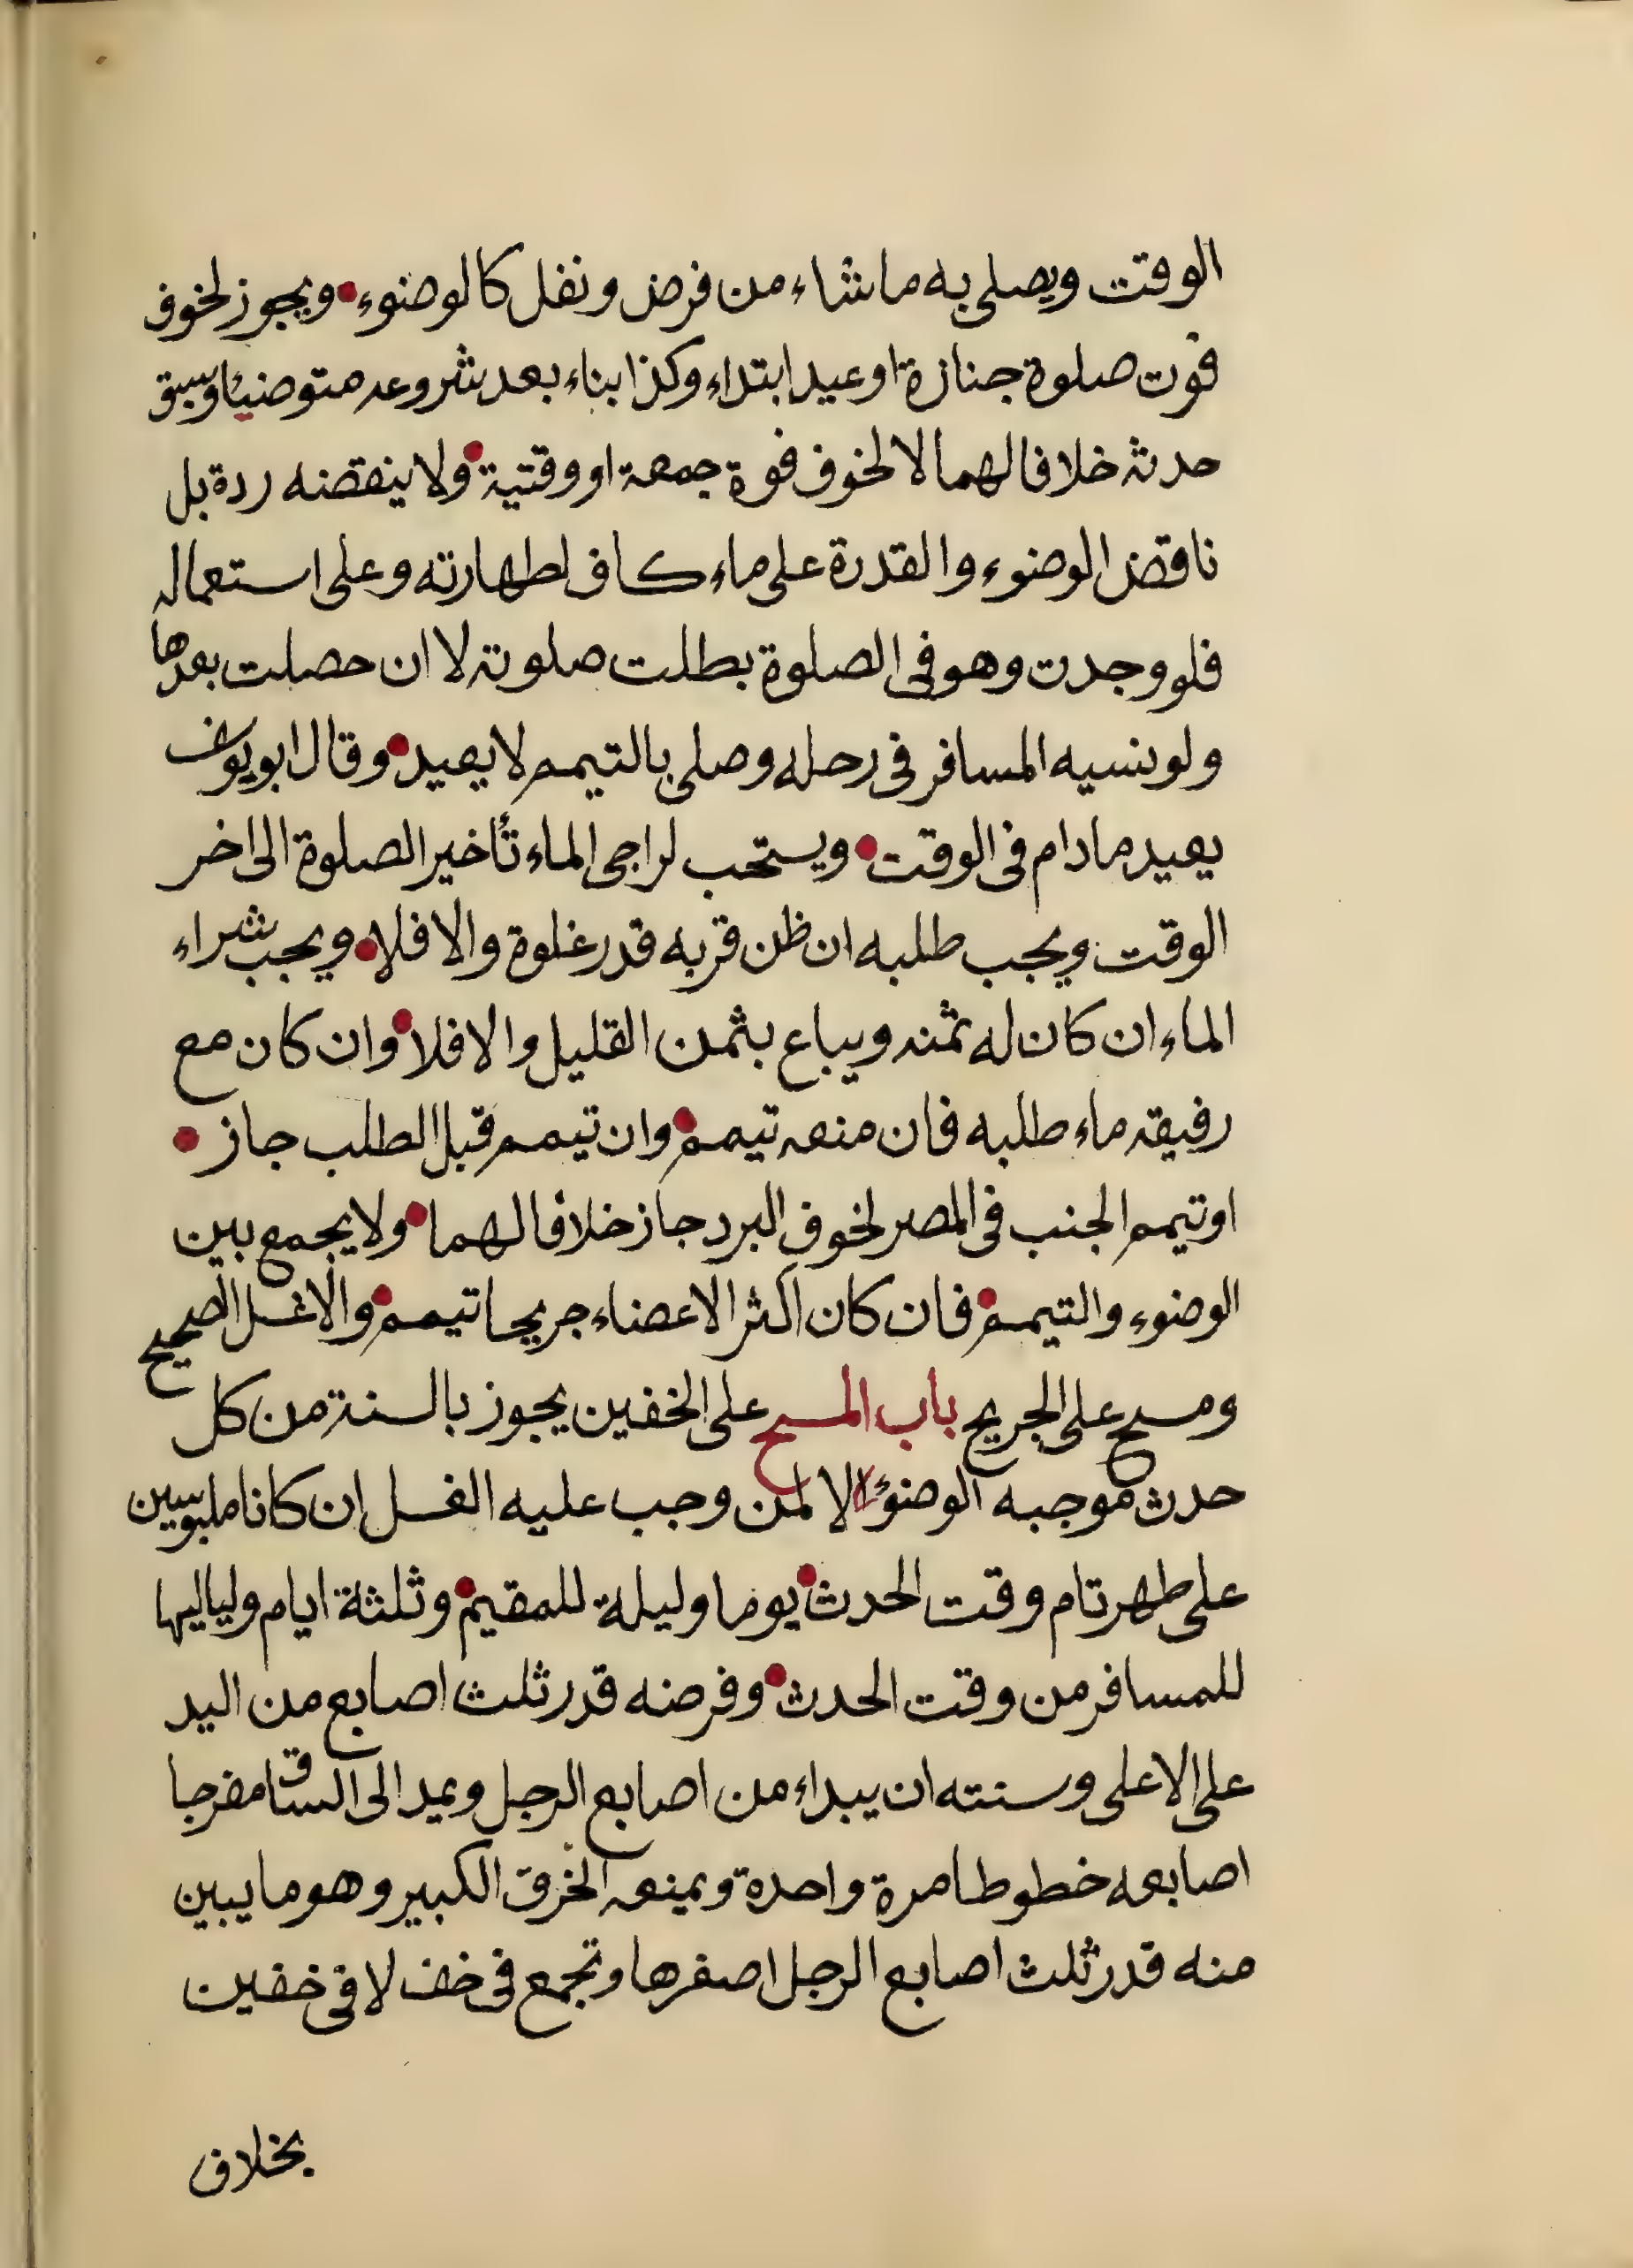 الوقت ويصلى به ماشاء من فرض ونفل كالوضوء • ويجوز لخوف
فوت صلوة جنازة اوعيد ابتداء وكذا بناء بعد شروعه متوضئا وسبق
حدثه خلافا لهما لا لخوف فوة جمعة او وقتية • ولا ينقضه ردة بل
ناقض الوضوء والقدرة على ماء كاف لطهارته وعلى استعماله
فلو وجدت وهو فى الصلوة بطلت صلوته لا ان حصلت بعدها
ولو نسيه المسافر فى رحله وصلى بالتيمم لا يعيد • وقال ابو يوسف
يعيد مادام فى الوقت • ويستحب لراجى الماء تأخير الصلوة الى اخر
الوقت ويجب طلبه ان ظن قربه قدر غلوة والا فلا • ويجب شراء
الماء ان كان له ثمنه ويباع بثمن القليل والا فلا • وان كان مع
رفيقه ماء طلبه فان منعه تيمم • وان تيمم قبل الطلب جاز •
اوتيمم الجنب فى المصر لخوف البرد جاز خلافا لهما • ولا يجمع بين
الوضوء والتيمم • فان كان اكثر الاعضاء جريحا تيمم • والا غسل الصحيح
ومسح على الجريح باب المسح على الخفين يجوز بالسنة من كل
حدث موجبه الوضوء لا لمن وجب عليه الغسل ان كانا ملبوسين
على طهر تام وقت الحدث • يوما وليلة للمقيم • وثلثة ايام ولياليها
للمسافر من وقت الحدث • وفرضه قدر ثلث اصابع من اليد
على الاعلى وسنته ان يبداء من اصابع الرجل ويمد الى الساق مفرجا
اصابعه خطوطا مرة واحدة ويمنعه الخرق الكبير وهو ما يبين
منه قدر ثلث اصابع الرجل اصغرها وتجمع فى خف لا فى خفين
بخلاف